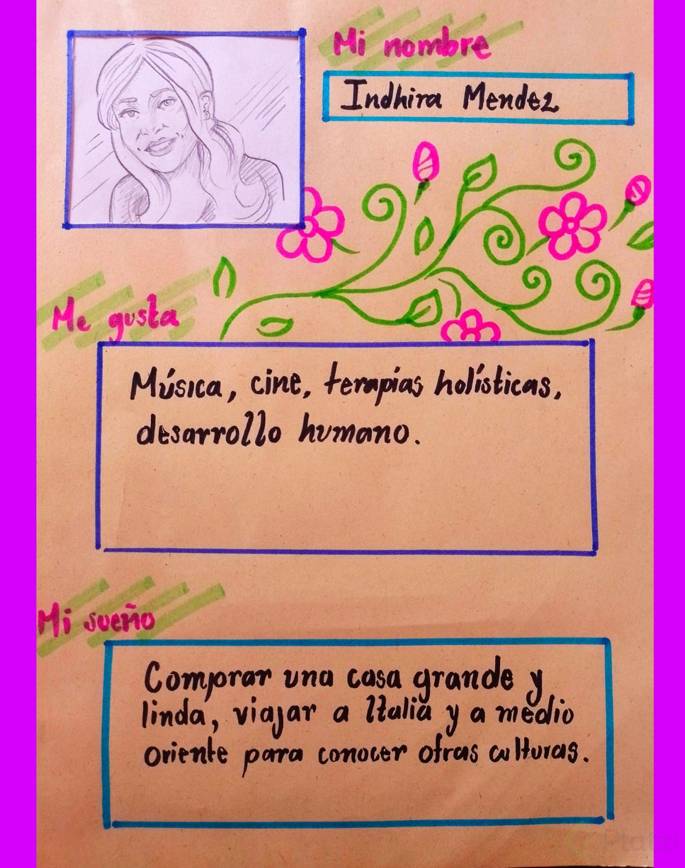 Mi nombre
Indhira Mendez
Me gusta
Música, cine, terapias holísticas,
desarrollo humano.
Mi sueño
Comprar una casa grande y
linda, viajar a Italia y a medio
oriente para conocer otras culturas.